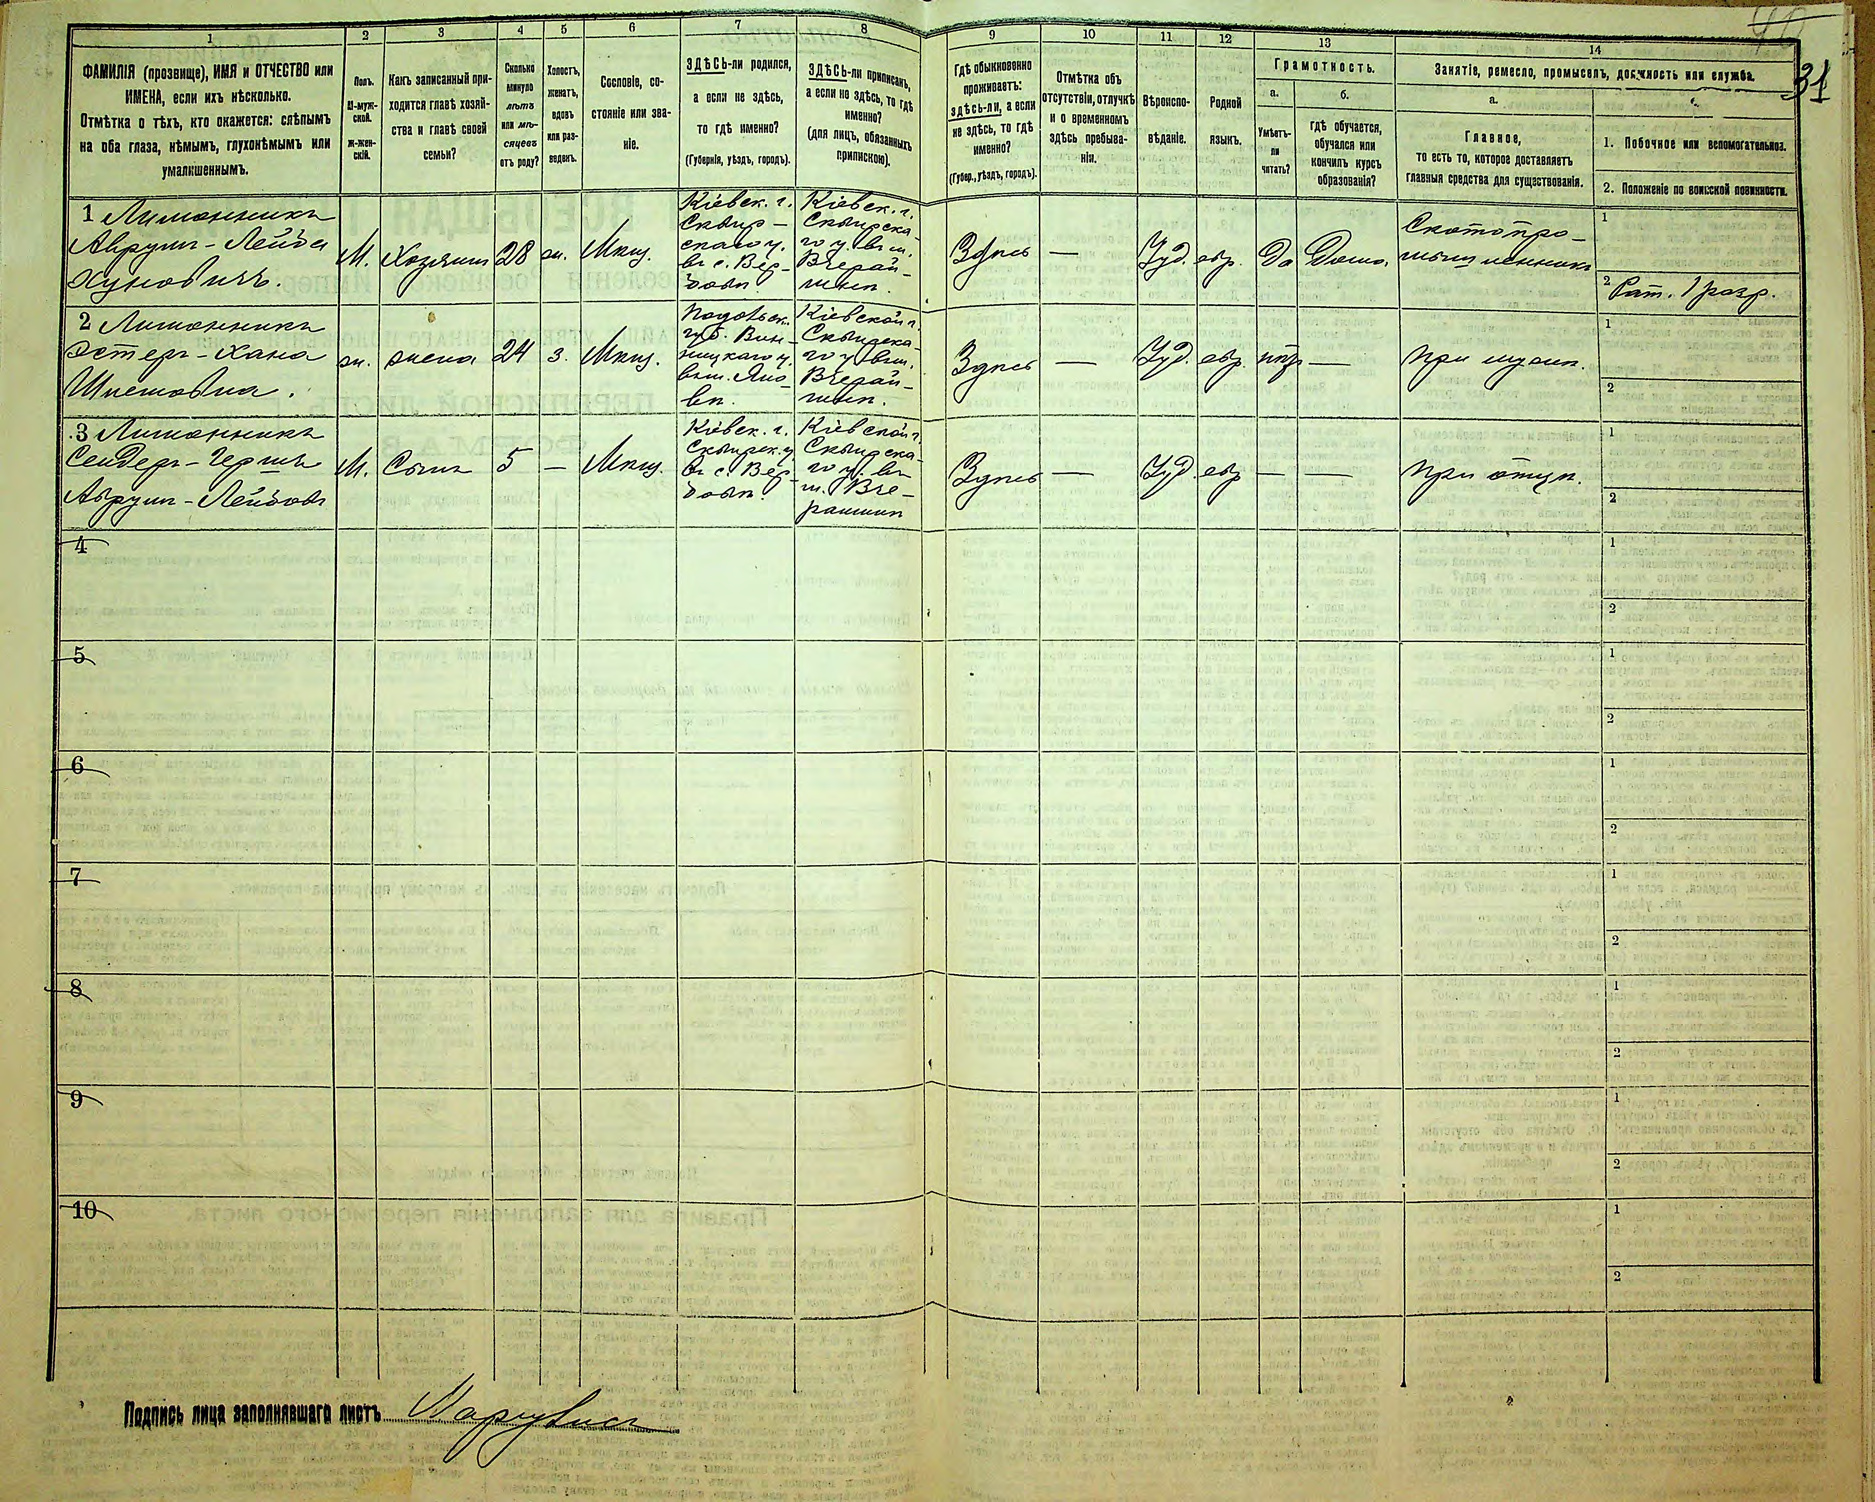 40
31
1 2 3 4 5 6 7 8 9 10 11 12 13 14
ФАМИЛІЯ (прозвище), ИМЯ и ОТЧЕСТВО или
ИМЕНА, если ихъ нѣсколько.
Отмѣтка о тѣхъ, кто окажется: слѣпымъ
на оба глаза, нѣмымъ, глухонѣмымъ или
умалишеннымъ.
Полъ.
М-муж-
ской.
Ж-жен-
скій.
Какъ записанный при-
ходится главѣ хозяй-
ства и главѣ своей
семьи?
Сколько
минуло
лѣтъ
или мѣ-
сяцевъ
отъ роду?
Холостъ,
женатъ,
вдовъ
или раз-
веденъ.
Сословіе, со-
стояніе или зва-
ніе.
ЗДѢСЬ-ли родился,
а если не здѣсь,
то гдѣ именно?
(Губернія, уѣздъ, городъ).
ЗДѢСЬ-ли приписанъ,
а если не здѣсь, то гдѣ
именно?
(для лицъ, обязанныхъ
припискою).
Гдѣ обыкновенно
проживаетъ:
здѣсь-ли, а если
не здѣсь, то гдѣ
именно?
(Губер., уѣздъ, городъ).
Отмѣтка объ
отсутствіи, отлучкѣ
и о временномъ
здѣсь пребыва-
ніи.
Вѣроиспо-
вѣданіе.
Родной
языкъ.
Грамотность.
а.
Умѣетъ-
ли
читать?
б.
Гдѣ обучается,
обучался или
кончилъ курсъ
образованія?
Занятіе, ремесло, промыселъ, должность или служба.
а.
Главное,
то есть то, которое доставляетъ
главныя средства для существованія.
1. Побочное или вспомогательное.
2. Положеніе по воинской повинности.
1 Лимонникъ
Аврумъ-Лейба
Хуновичъ.
М.
Хозяинъ
28
ж.
Мѣщ.
Кіевск. г.
Сквир-
скаго у.
въ с. Вер-
бовѣ.
Кіевск. г.
Сквирска-
го у. въ м.
Вчерай-
шемъ.
Здѣсь
—
Іуд.
евр.
Да
Дома.
Скотопро-
мышленникъ
1
2 Рат. 1 разр.
2 Лимонникъ
Эстеръ-Хана
Шмеовна.
ж.
жена
24
з.
Мѣщ.
Подольск.
губ. Вин-
ницкаго у.
въ м. Яно-
вѣ.
Кіевской г.
Сквирска-
го у. въ м.
Вчерай-
шемъ.
Здѣсь
—
Іуд.
евр.
нѣтъ
—
при мужѣ.
1
2
3 Лимонникъ
Сендеръ-Гершъ
Аврумъ-Лейбовъ
М.
Сынъ
5
—
Мѣщ.
Кіевск. г.
Сквирск. у.
въ с. Вер-
бовѣ.
Кіевской г.
Сквирска-
го у. въ
м. Вче-
райшемъ
Здѣсь
—
Іуд.
евр
—
—
при отцѣ.
1
2
4
1
2
5
1
2
6
1
2
7
1
2
8
1
2
9
1
2
10
1
2
Подпись лица заполнявшаго листъ